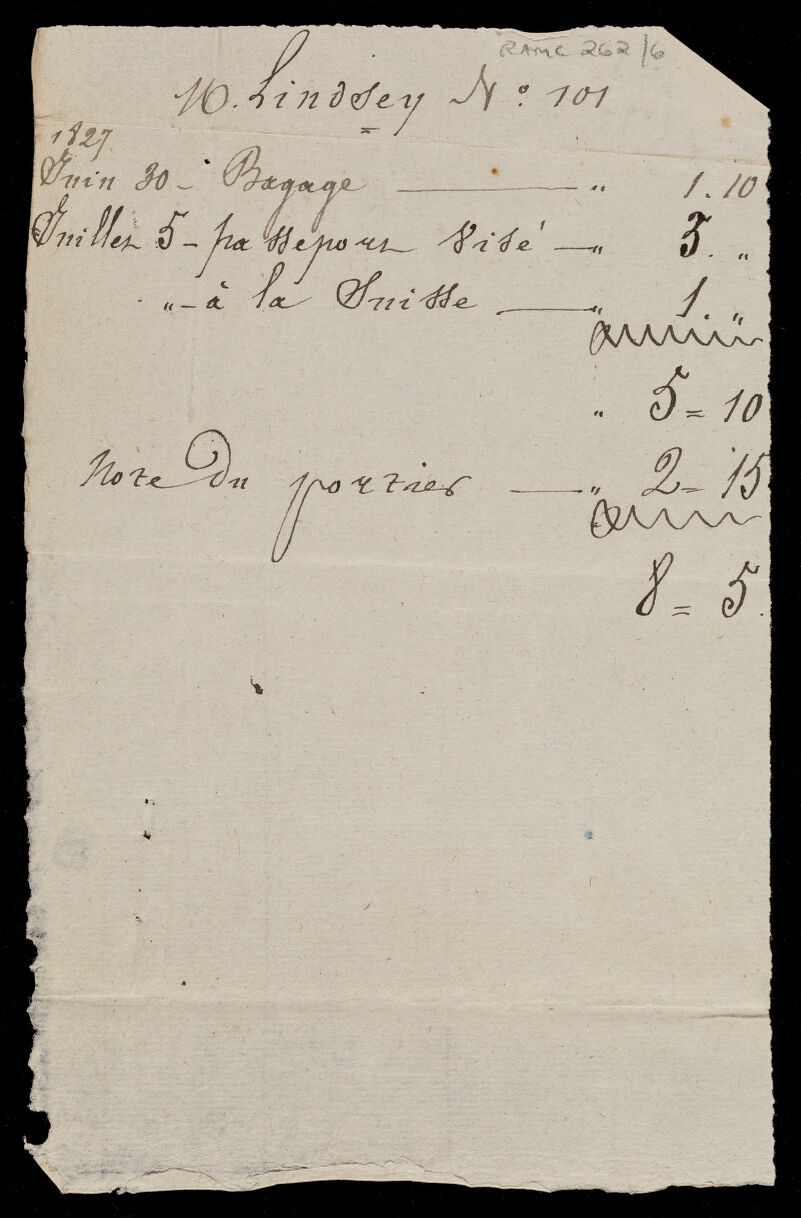 RAMC 262/6
M. Lindsey N.° 101
1827
Juin 30 - Bagage — " 1.10
Juillet 5 - passeport visé — " 3. "
" - à la Suisse — " 1. "
" 5 = 10
Note Du portier — " 2 = 15
8 = 5.